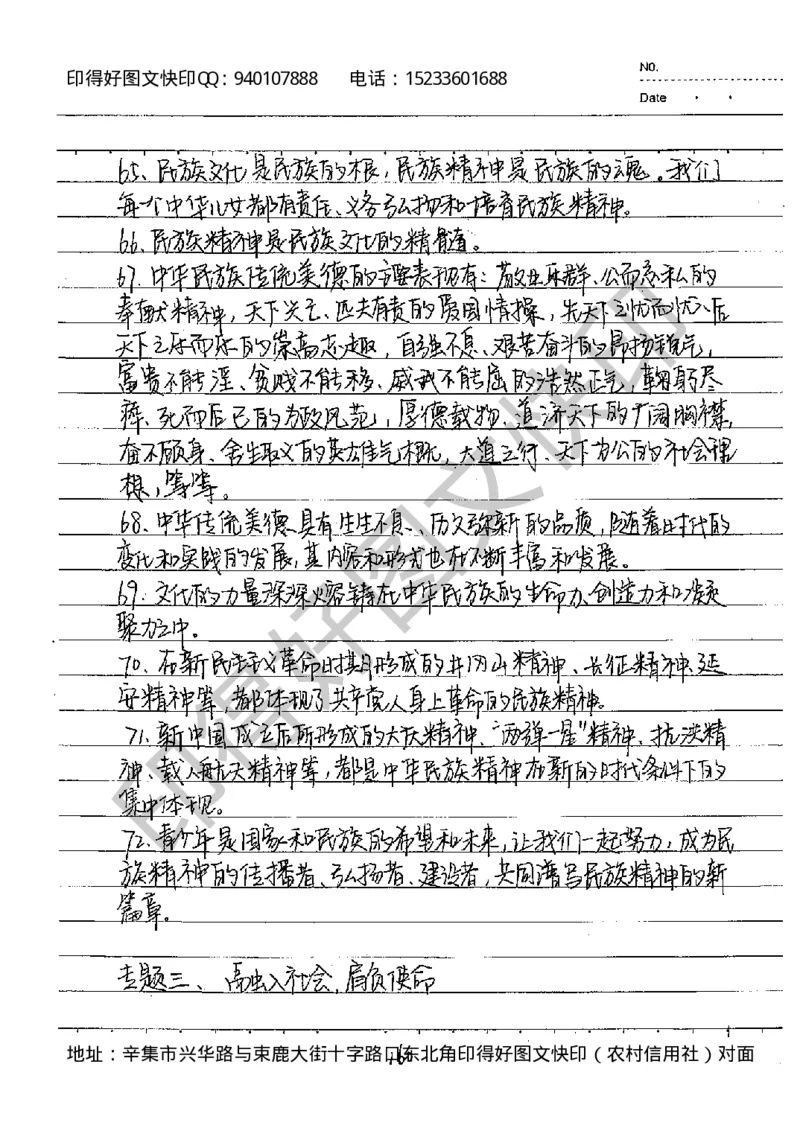 印得好图文快印QQ：940107888 电话：15233601688
NO.
Date
65、民族文化是民族的根，民族精神是民族的魂。我们
每个中华儿女都有责任、义务弘扬和培育民族精神。
66、民族精神是民族文化的精髓。
67、中华民族传统美德的主要表现有：敬业乐群、公而忘私的
奉献精神，天下兴亡、匹夫有责的爱国情操，先天下之忧而忧、后
天下之乐而乐的崇高志趣，自强不息、艰苦奋斗的昂扬锐气，
富贵不能淫、贫贱不能移、威武不能屈的浩然正气，鞠躬尽
瘁、死而后已的为政风范，厚德载物、道济天下的广阔胸襟，
奋不顾身、舍生取义的英雄气概，大道之行、天下为公的社会理
想，等等。
68、中华传统美德具有生生不息、历久弥新的品质，随着时代的
变化和实践的发展，其内容和形式也在不断丰富和发展。
69.文化的力量深深熔铸在中华民族的生命力、创造力和凝
聚力之中。
70、在新民主主义革命时期形成的井冈山精神、长征精神、延
安精神等，都体现了共产党人身上革命的民族精神。
71、新中国成立后所形成的大庆精神、“两弹一星”精神、抗洪精
神、载人航天精神等，都是中华民族精神在新的时代条件下的
集中体现。
72、青少年是国家和民族的希望和未来，让我们一起努力，成为民
族精神的传播者、弘扬者、建设者，共同谱写民族精神的新
篇章。
专题三、融入社会，肩负使命
地址：辛集市兴华路与束鹿大街十字路口东北角印得好图文快印（农村信用社）对面
印得好图文快印